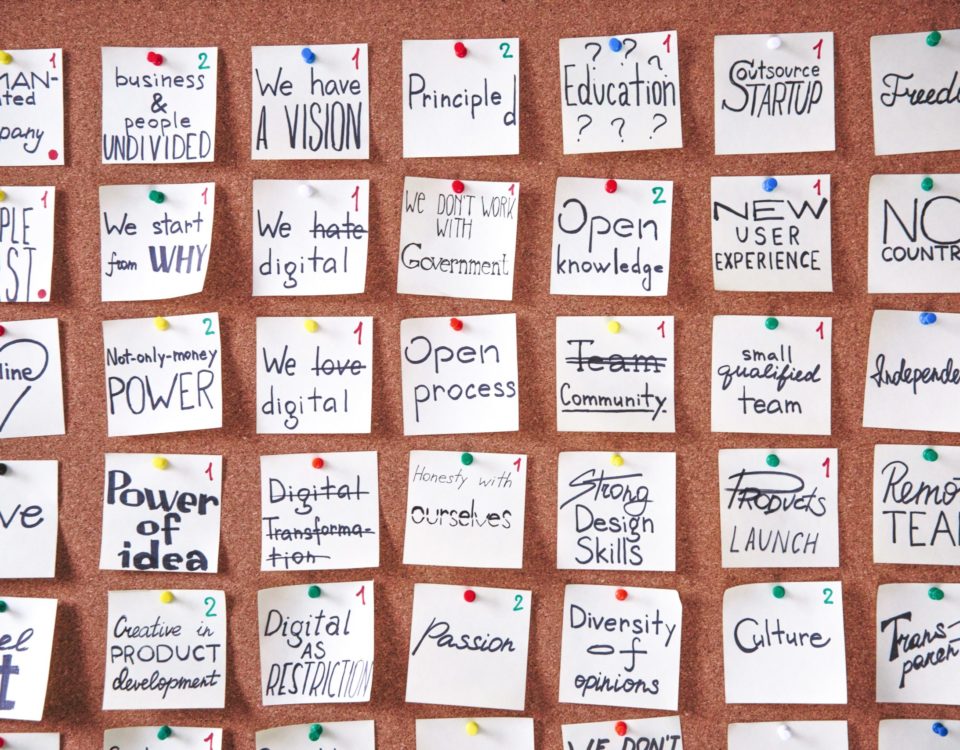 1
MAN-
ated
pany
2
business
&
people
UNDIVIDED
1
We have
A VISION
2
Principled
1
? ? ?
Education
? ? ?
1
Outsource
STARTUP
Freedo
1
PLE
ST.
1
We start
from WHY
1
We hate
digital
1
WE DON'T WORK
WITH
Government
2
Open
knowledge
1
NEW
USER
EXPERIENCE
NO
COUNTR
line
2
Not-only-money
POWER
1
We love
digital
Open
process
1
Team
Community.
1
small
qualified
team
Independe
ve
1
Power
of
idea
Digital
Transforma-
tion
1
Honesty with
ourselves
Strong
Design
Skills
1
PRODUCTS
LAUNCH
Remo
TEA
el
t
2
Creative in
PRODUCT
development
1
Digital
AS
RESTRICTION
2
Passion
Diversity
of
opinions
2
Culture
Trans-
paren
1
WE DON'T